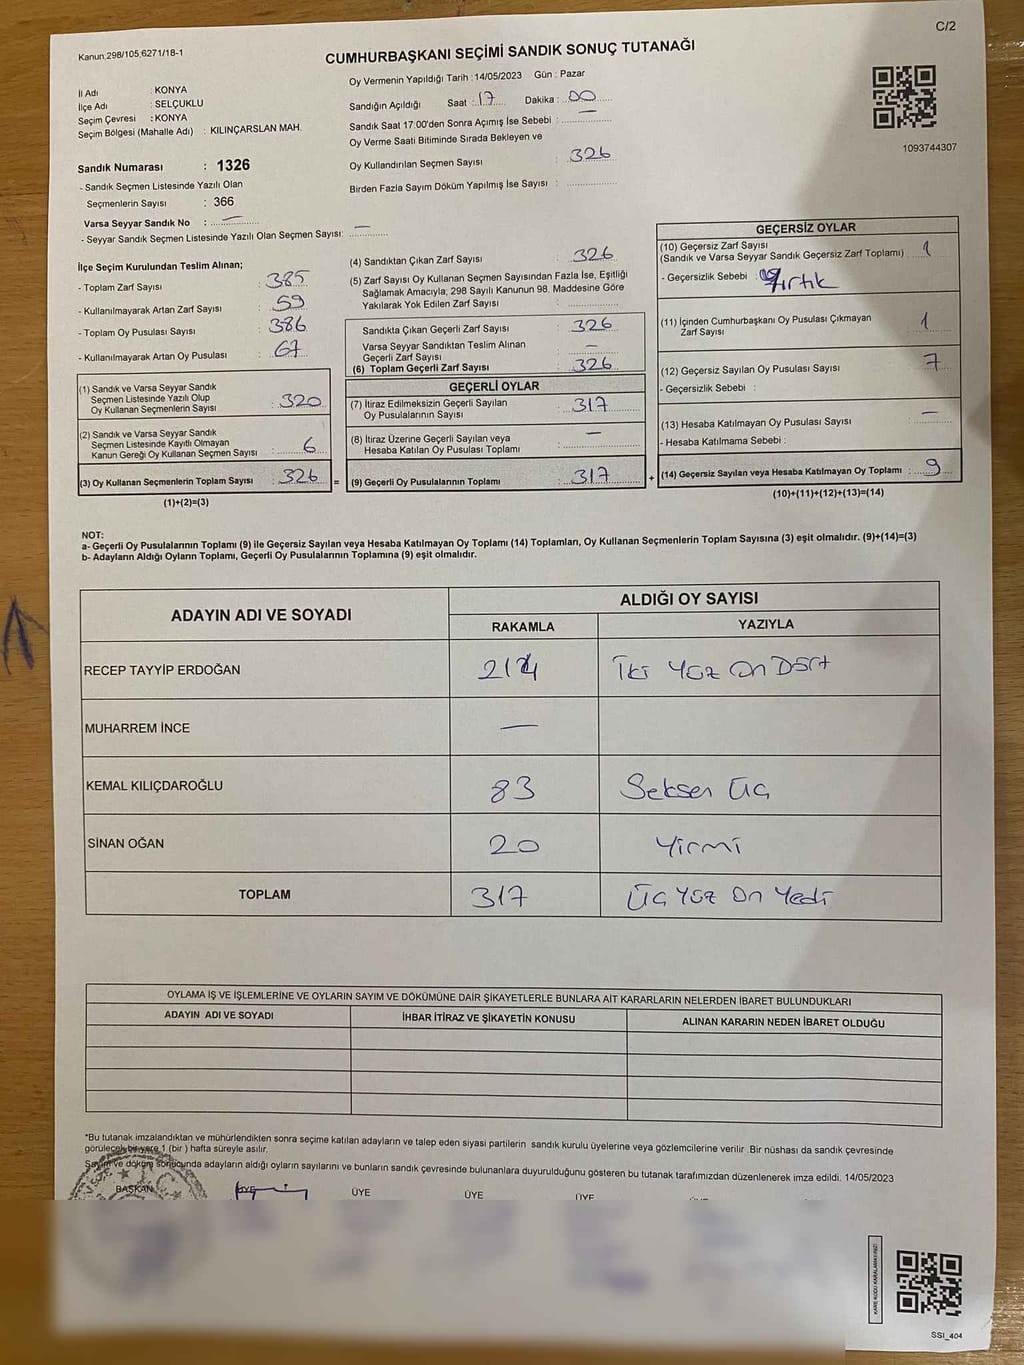 C/2
Kanun;298/105;6271/18-1
CUMHURBAŞKANI SEÇİMİ SANDIK SONUÇ TUTANAĞI
İl Adı : KONYA
İlçe Adı : SELÇUKLU
Seçim Çevresi : KONYA
Seçim Bölgesi (Mahalle Adı) : KILINÇARSLAN MAH.
Sandık Numarası : 1326
- Sandık Seçmen Listesinde Yazılı Olan
Seçmenlerin Sayısı : 366
Varsa Seyyar Sandık No : —
- Seyyar Sandık Seçmen Listesinde Yazılı Olan Seçmen Sayısı: —
Oy Vermenin Yapıldığı Tarih : 14/05/2023 Gün : Pazar
Sandığın Açıldığı Saat : 17 Dakika : 00
Sandık Saat 17:00'den Sonra Açımış İse Sebebi : —
Oy Verme Saati Bitiminde Sırada Bekleyen ve
Oy Kullandırılan Seçmen Sayısı : 326
Birden Fazla Sayım Döküm Yapılmış İse Sayısı :
1093744307
İlçe Seçim Kurulundan Teslim Alınan;
- Toplam Zarf Sayısı : 385
- Kullanılmayarak Artan Zarf Sayısı : 59
- Toplam Oy Pusulası Sayısı : 386
- Kullanılmayarak Artan Oy Pusulası : 67
(1) Sandık ve Varsa Seyyar Sandık
Seçmen Listesinde Yazılı Olup
Oy Kullanan Seçmenlerin Sayısı : 320
(2) Sandık ve Varsa Seyyar Sandık
Seçmen Listesinde Kayıtlı Olmayan
Kanun Gereği Oy Kullanan Seçmen Sayısı : 6
(3) Oy Kullanan Seçmenlerin Toplam Sayısı : 326 =
(1)+(2)=(3)
(4) Sandıktan Çıkan Zarf Sayısı : 326
(5) Zarf Sayısı Oy Kullanan Seçmen Sayısından Fazla İse, Eşitliği
Sağlamak Amacıyla; 298 Sayılı Kanunun 98. Maddesine Göre
Yakılarak Yok Edilen Zarf Sayısı :
Sandıkta Çıkan Geçerli Zarf Sayısı : 326
Varsa Seyyar Sandıktan Teslim Alınan
Geçerli Zarf Sayısı : —
(6) Toplam Geçerli Zarf Sayısı : 326
GEÇERLİ OYLAR
(7) İtiraz Edilmeksizin Geçerli Sayılan
Oy Pusulalarının Sayısı : 317
(8) İtiraz Üzerine Geçerli Sayılan veya
Hesaba Katılan Oy Pusulası Toplamı : —
(9) Geçerli Oy Pusulalarının Toplamı : 317 +
GEÇERSİZ OYLAR
(10) Geçersiz Zarf Sayısı
(Sandık ve Varsa Seyyar Sandık Geçersiz Zarf Toplamı) : 1
- Geçersizlik Sebebi : Yırtık
(11) İçinden Cumhurbaşkanı Oy Pusulası Çıkmayan
Zarf Sayısı : 1
(12) Geçersiz Sayılan Oy Pusulası Sayısı : 7
- Geçersizlik Sebebi :
(13) Hesaba Katılmayan Oy Pusulası Sayısı : —
- Hesaba Katılmama Sebebi :
(14) Geçersiz Sayılan veya Hesaba Katılmayan Oy Toplamı : 9
(10)+(11)+(12)+(13)=(14)
NOT:
a- Geçerli Oy Pusulalarının Toplamı (9) ile Geçersiz Sayılan veya Hesaba Katılmayan Oy Toplamı (14) Toplamları, Oy Kullanan Seçmenlerin Toplam Sayısına (3) eşit olmalıdır. (9)+(14)=(3)
b- Adayların Aldığı Oyların Toplamı, Geçerli Oy Pusulalarının Toplamına (9) eşit olmalıdır.
ADAYIN ADI VE SOYADI ALDIĞI OY SAYISI
RAKAMLA YAZIYLA
RECEP TAYYİP ERDOĞAN 214 İki Yüz On Dört
MUHARREM İNCE —
KEMAL KILIÇDAROĞLU 83 Seksen Üç
SİNAN OĞAN 20 Yirmi
TOPLAM 317 Üç Yüz On Yedi
OYLAMA İŞ VE İŞLEMLERİNE VE OYLARIN SAYIM VE DÖKÜMÜNE DAİR ŞİKAYETLERLE BUNLARA AİT KARARLARIN NELERDEN İBARET BULUNDUKLARI
ADAYIN ADI VE SOYADI İHBAR İTİRAZ VE ŞİKAYETİN KONUSU ALINAN KARARIN NEDEN İBARET OLDUĞU
*Bu tutanak imzalandıktan ve mühürlendikten sonra seçime katılan adayların ve talep eden siyasi partilerin sandık kurulu üyelerine veya gözlemcilerine verilir .Bir nüshası da sandık çevresinde
görülecek bir yere 1 (bir ) hafta süreyle asılır.
Sayım ve döküm sonucunda adayların aldığı oyların sayılarını ve bunların sandık çevresinde bulunanlara duyurulduğunu gösteren bu tutanak tarafımızdan düzenlenerek imza edildi. 14/05/2023
BAŞKAN ÜYE ÜYE ÜYE
KARE KODU KARALAMAYINIZ!
SSI_404